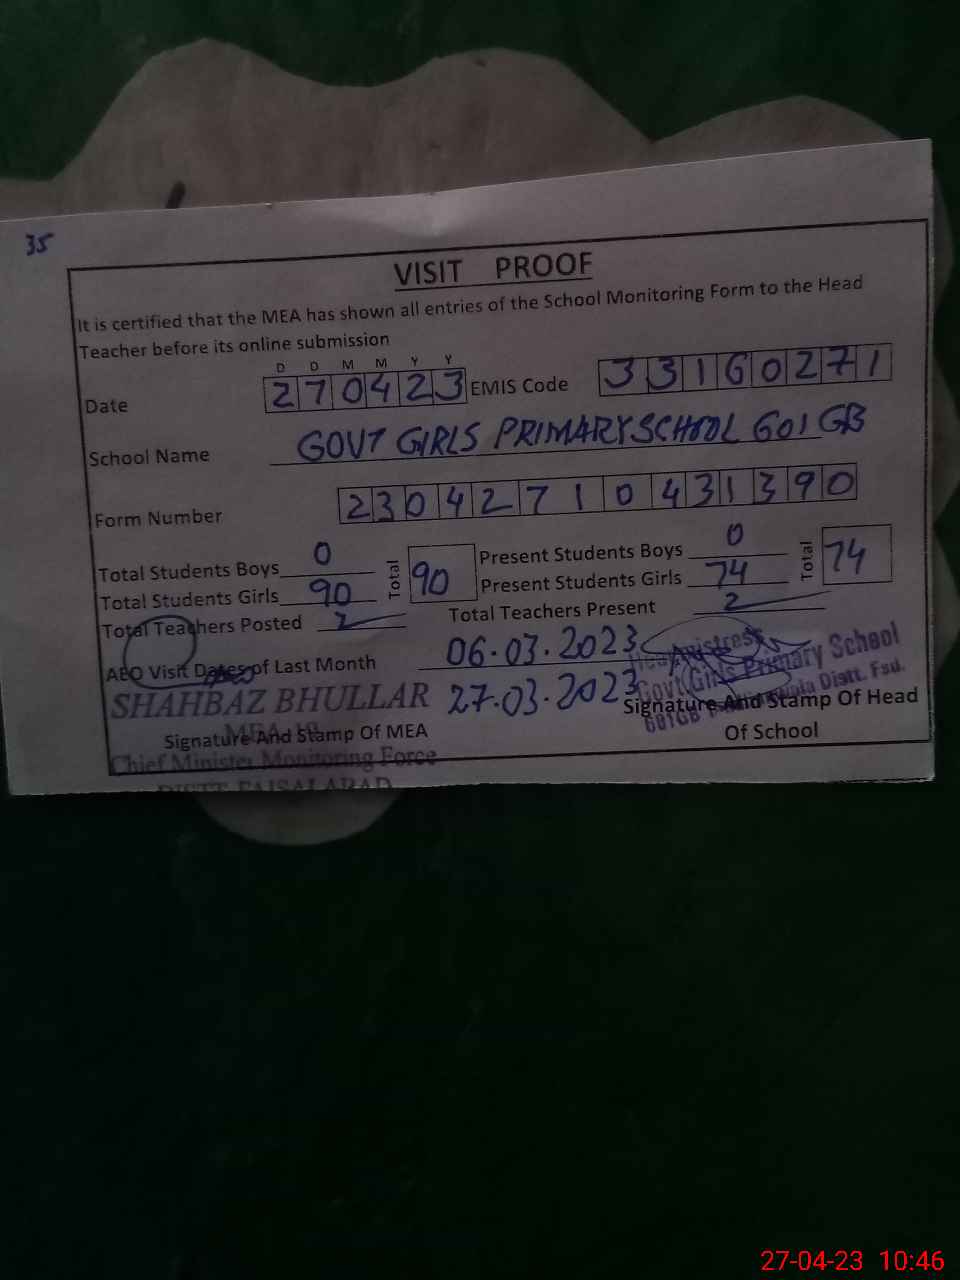 35
VISIT PROOF
It is certified that the MEA has shown all entries of the School Monitoring Form to the Head
Teacher before its online submission
D D M M Y Y
Date 270423 EMIS Code 33160271
School Name GOVT GIRLS PRIMARY SCHOOL 601 GB
Form Number 23042710431390
Total Students Boys 0 Total 90 Present Students Boys 0 Total 74
Total Students Girls 90 Present Students Girls 74
Total Teachers Posted 2 Total Teachers Present 2
AEO Visit Dates of Last Month 06.03.2023
27.03.2023
SHAHBAZ BHULLAR
Signature And Stamp Of MEA
Chief Minister Monitoring Force
DISTT FAISALABAD
Headmistress
Govt Girls Primary School
601GB Distt. Fsd.
Signature And Stamp Of Head
Of School
27-04-23 10:46